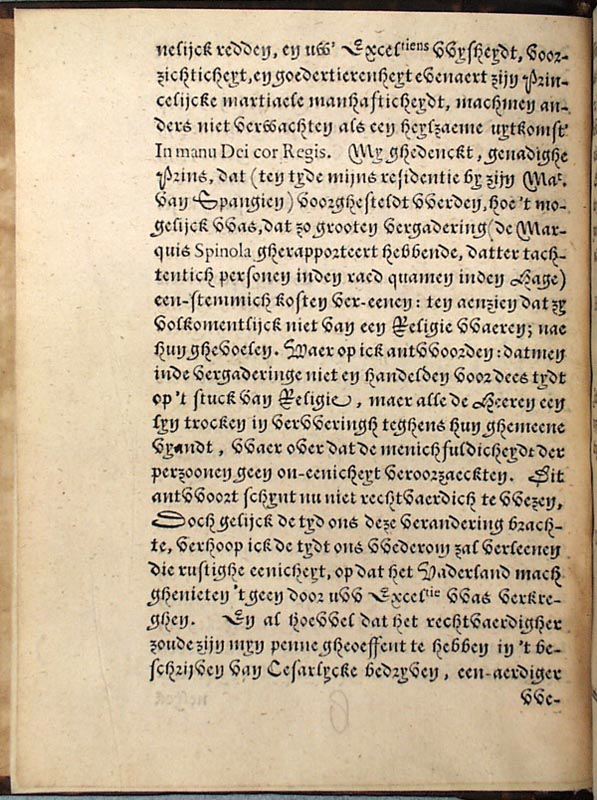 nelijck redden, en uw' Exceltiens VVysheydt, voor-
zichticheyt, en goedertierenheyt evenaert zijn Prin-
celijcke martiaele manhafticheydt, machmen an-
ders niet verwachten als een heylzaeme uytkomst
In manu Dei cor Regis. My ghedenckt, genadighe
Prins, dat (ten tyde mijns residentie by zijn Mat.
van Spangien) voorghesteldt vverden, hoe 't mo-
gelijck vvas, dat zo grooten vergadering (de Mar-
quis Spinola gherapporteert hebbende, datter tach-
tentich personen inden raed quamen inden Hage)
een-stemmich kosten ver-eenen: ten aenzien dat zy
volkomentlijck niet van een Religie vvaeren; nae
hun ghevoelen. Waer op ick antvvoorden: datmen
inde vergaderinge niet en handelden voor dees tydt
op 't stuck van Religie, maer alle de Heeren een
lyn trocken in vervveringh teghens hun ghemeene
vyandt, vvaer over dat de menichfuldicheydt der
perzoonen geen on-eenicheyt veroorzaeckten. Dit
antvvoort schynt nu niet rechtvaerdich te vvezen,
Doch gelijck de tyd ons deze verandering brach-
te, verhoop ick de tydt ons vvederom zal verleenen
die rustighe eenicheyt, op dat het Vaderland mach
ghenieten 't geen door uvv Exceltie vvas verkre-
ghen. En al hoevvel dat het rechtvaerdigher
zoude zijn myn penne gheoeffent te hebben in 't be-
schrijven van Cesarlycke bedryven, een-aerdiger
vve-